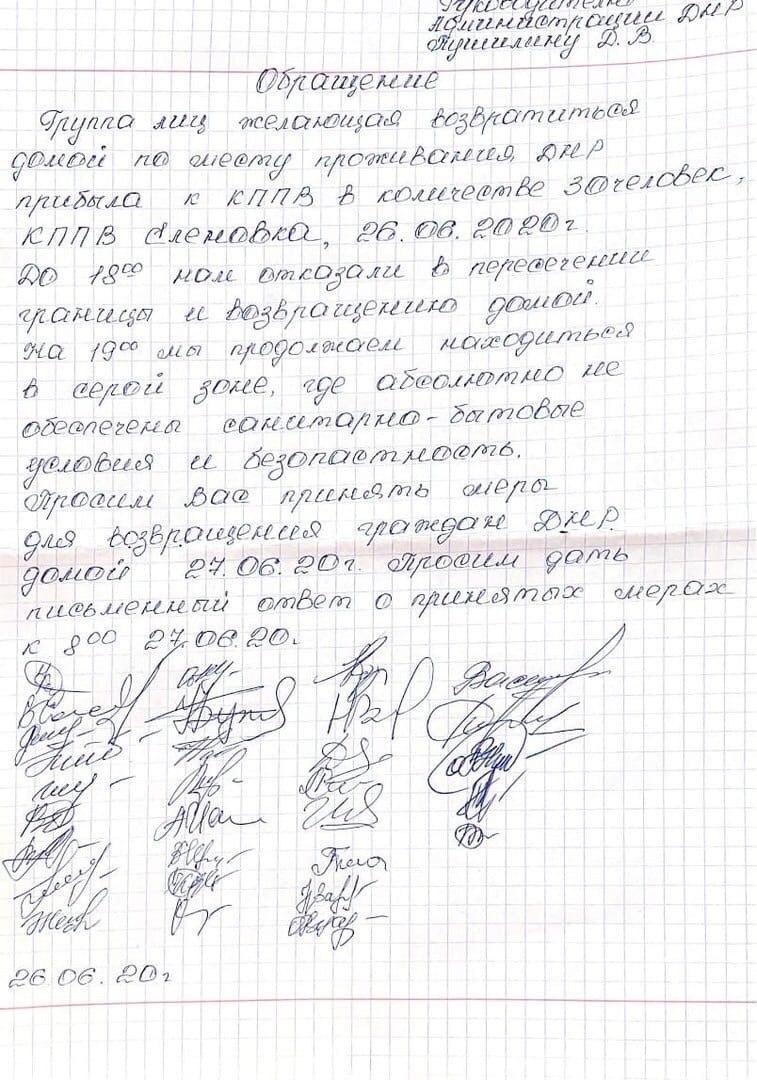 Руководителю
Администрации ДНР
Пушилину Д. В.
Обращение
Группа лиц желающая возвратиться
домой по месту проживания ДНР
прибыла к КППВ в количестве 30 человек,
КППВ Еленовка, 26.06.2020г.
До 18⁰⁰ нам отказали в пересечении
границы и возвращению домой.
На 19⁰⁰ мы продолжаем находиться
в серой зоне, где абсолютно не
обеспечены санитарно-бытовые
условия и безопастность.
Просим Вас принять меры
для возвращения граждан ДНР.
домой 27.06.20г. Просим дать
письменный ответ о принятых мерах
к 8⁰⁰ 27.06.20г.
26.06.20г